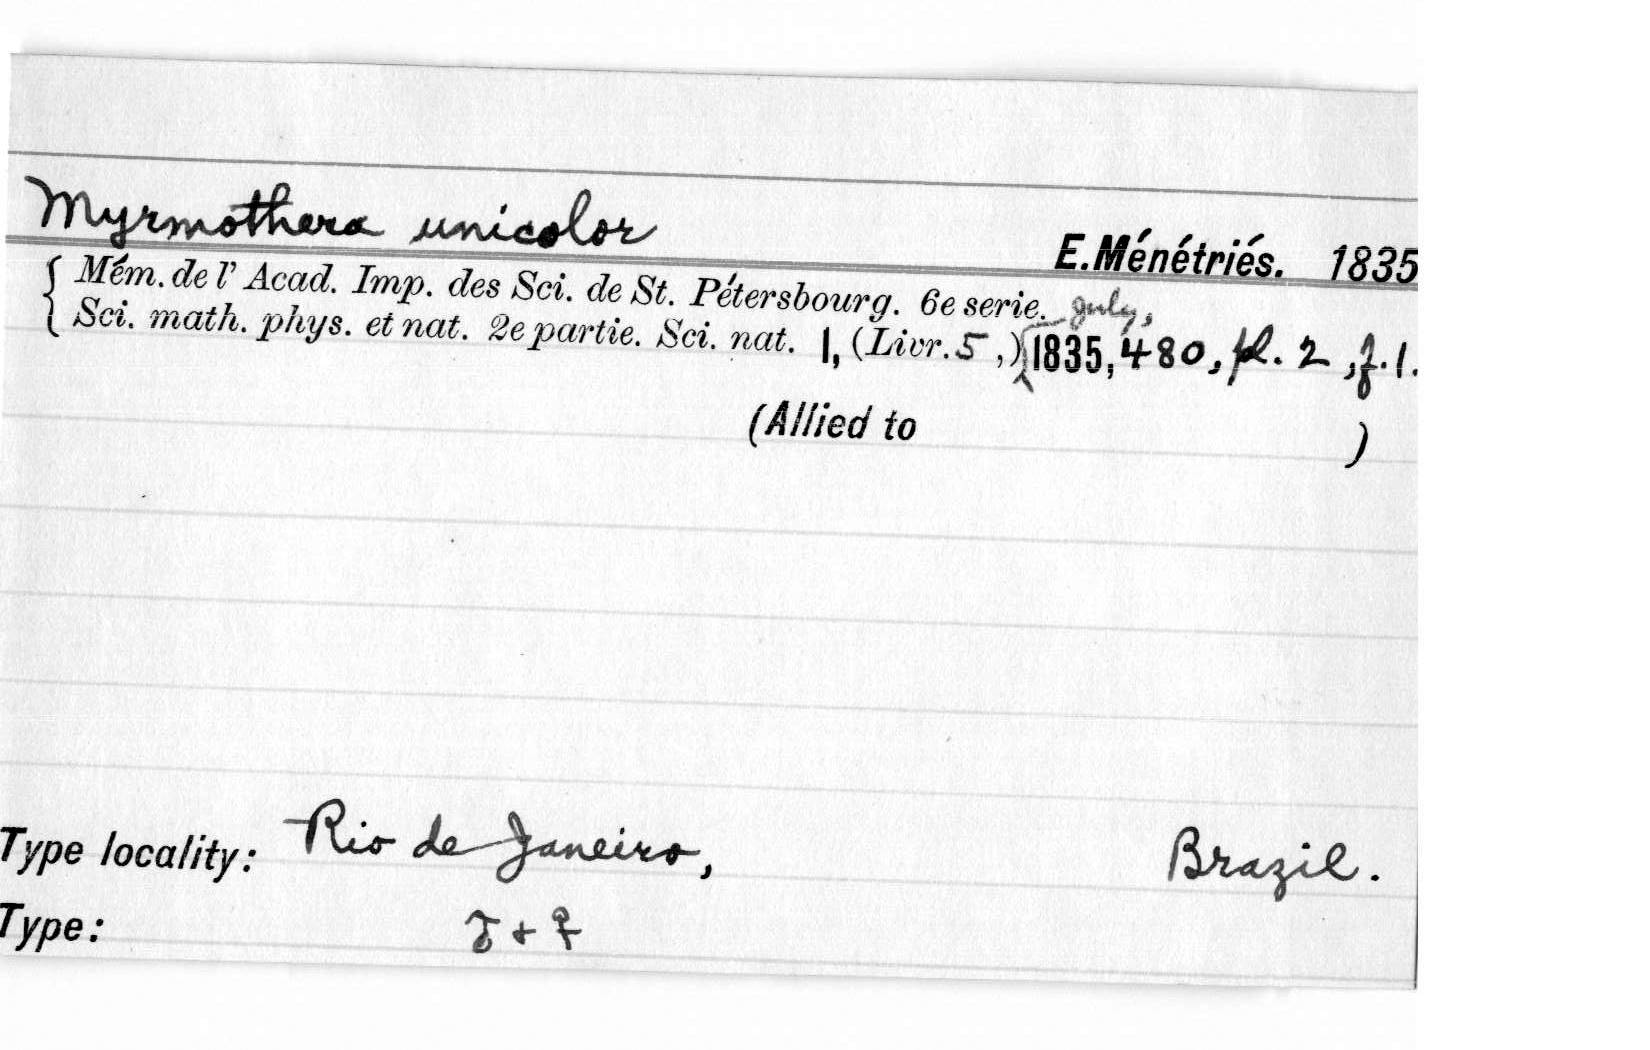 Myrmothera unicolor
E. Ménétriés. 1835
{ Mém. de l' Acad. Imp. des Sci. de St. Pétersbourg. 6e serie. July,
Sci. math. phys. et nat. 2e partie. Sci. nat. 1, (Livr. 5 ,) 1835, 480, pl. 2, f. 1.
(Allied to )
Type locality: Rio de Janeiro, Brazil.
Type: ♂ + ♀